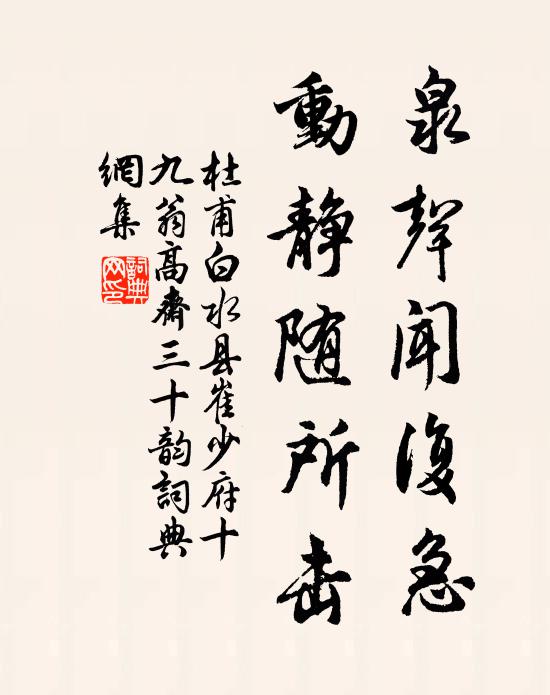 泉聲聞復急
動静随所击
杜甫白水县崔少府十
九翁高齋三十韵詞典
網集
詞典网印